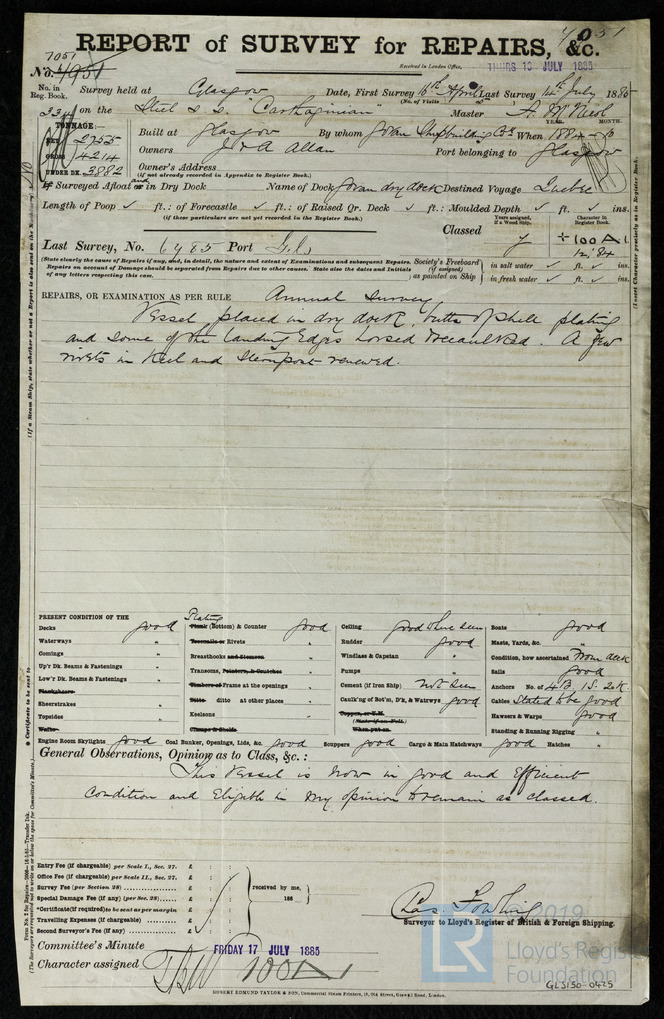 7051
REPORT of SURVEY for REPAIRS, &c.
7051
No. 4951
Received in London Office, THURS 10 JULY 1885
No. in Reg. Book.
Survey held at Glasgow Date, First Survey 16th April Last Survey 14th July 1885
(No. of Visits
334 on the Steel s.s. "Carthaginian" Master A. McNicol
TONNAGE:—
NET 2755
GROSS 4214
UNDER DK. 3882
YEAR. MONTH.
Built at Glasgow By whom Govan Shipbuilding Co. When 1884 - 10
Owners J & A Allan Port belonging to Glasgow
Owner's Address
(if not already recorded in Appendix to Register Book.)
If Surveyed Afloat or and in Dry Dock Name of Dock Govan dry dock Destined Voyage Quebec
Length of Poop ✓ ft.: of Forecastle ✓ ft.: of Raised Qr. Deck ✓ ft.: Moulded Depth ✓ ft. ✓ ins.
(if these particulars are not yet recorded in the Register Book.)
Years assigned, if a Wood Ship. Character in Register Book.
Classed
+100 A1
12,84
Last Survey, No. 6985 Port Gls
(State clearly the cause of Repairs if any, and, in detail, the nature and extent of Examinations and subsequent Repairs.
Repairs on account of Damage should be separated from Repairs due to other causes. State also the dates and Initials
of any letters respecting this case.)
Society's Freeboard (if assigned) as painted on Ship
in salt water ✓ ft. ✓ ins.
in fresh water ✓ ft. ✓ ins.
REPAIRS, OR EXAMINATION AS PER RULE Annual Survey
Vessel placed in dry dock, butts of shell plating
and some of the landing Edges horsed & recaulked. A few
rivets in Keel and Sternpost renewed.
PRESENT CONDITION OF THE
Decks good
Waterways "
Comings "
Up'r Dk. Beams & Fastenings "
Low'r Dk. Beams & Fastenings "
Planksheers
Sheerstrakes "
Topsides "
Wales
Plating
Plank (Bottom) & Counter good
Treenails or Rivets "
Breasthooks and Stemson "
Transoms, Pointers, & Crutches "
Timbers or Frame at the openings "
Ditto ditto at other places "
Keelsons "
Clamps & Shelfs
Ceiling good where seen
Rudder good
Windlass & Capstan "
Pumps "
Cement (if Iron Ship) not seen
Caulk'ng of Bot'm, D'k, & Watrwys good
Copper, or Y.M.
(State if on Felt)
When put on
Boats good
Masts, Yards, &c. "
Condition, how ascertained From deck
Sails good
Anchors No. of 4B, 1S, 2K.
Cables Stated to be good
Hawsers & Warps good
Standing & Running Rigging "
Engine Room Skylights good Coal Bunker, Openings, Lids, &c. good Scuppers good Cargo & Main Hatchways good Hatches "
General Observations, Opinion as to Class, &c.:
This Vessel is now in good and Efficient
Condition and Eligible in my opinion to remain as classed.
Entry Fee (if chargeable) per Scale I., Sec. 27. £ : :
Office Fee (if chargeable) per Scale II., Sec. 27. £ : :
Survey Fee (per Section 28) £ : :
Special Damage Fee (if any) (per Sec. 28) £ : :
*Certificate (if required) to be sent as per margin £ : :
Travelling Expenses (if chargeable) £ : :
Second Surveyor's Fee (if any) £ : :
received by me,
188
Surveyor to Lloyd's Register of British & Foreign Shipping.
Committee's Minute FRIDAY 17 JULY 1885
Character assigned 100A1
ROBERT EDMUND TAYLOR & SON, Commercial Steam Printers, 19, Old Street, Goswell Road, London.
© 2019
LR
Lloyd's Register
Foundation
GLS150-0425